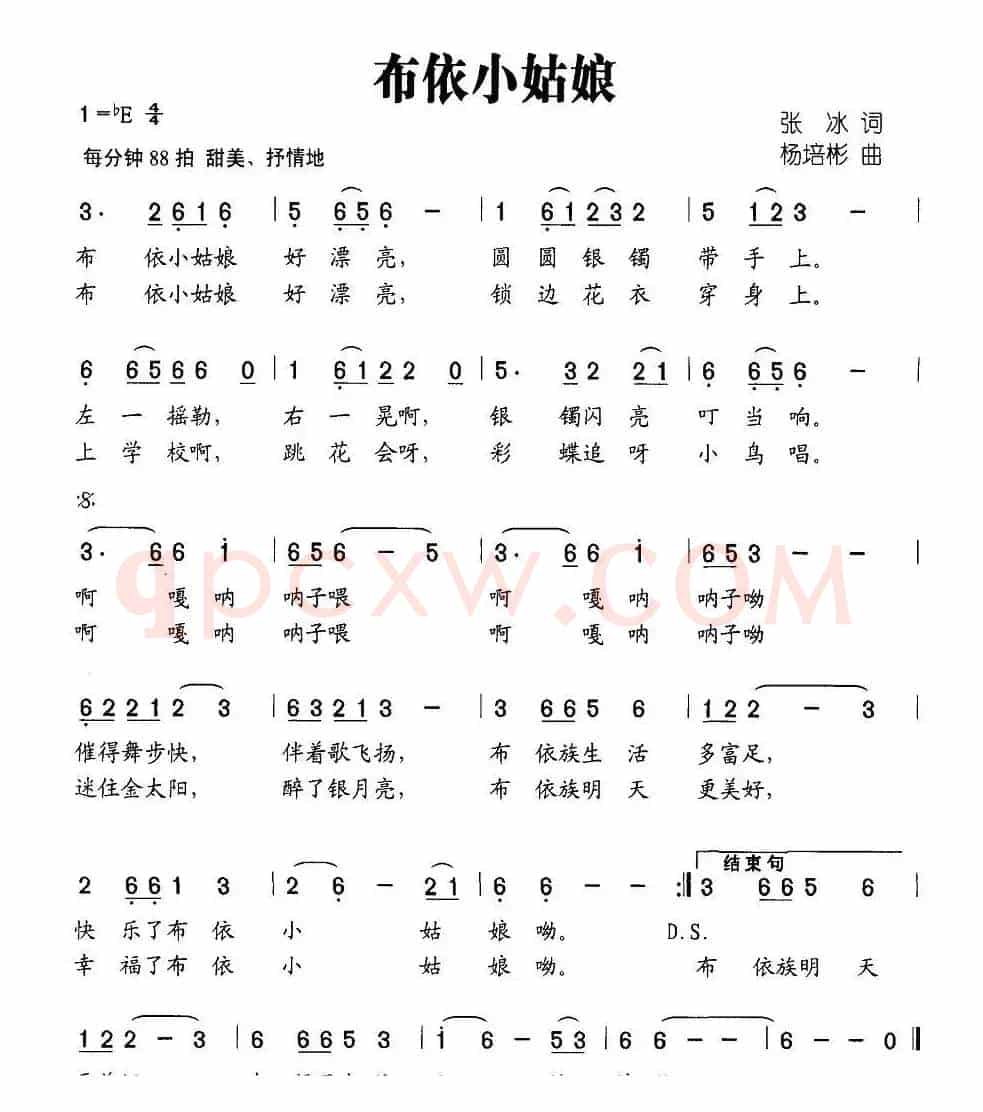 布依小姑娘
1=♭E 4/4
张 冰 词
每分钟 88 拍 甜美、抒情地
杨培彬 曲
3· 2 6 1 6 | 5 6 5 6 － | 1 6 1 2 3 2 | 5 1 2 3 － |
布 依小姑娘 好 漂 亮, 圆 圆 银 镯 带 手 上。
布 依小姑娘 好 漂 亮, 锁 边 花 衣 穿 身 上。
6 6 5 6 6 0 | 1 6 1 2 2 0 | 5· 3 2 2 1 | 6 6 5 6 － |
左 一 摇勒, 右 一 晃啊, 银 镯闪 亮 叮 当 响。
上 学 校啊, 跳 花 会呀, 彩 蝶追 呀 小 鸟 唱。
3· 6 6 i | 6 5 6 － 5 | 3· 6 6 i | 6 5 3 － － |
qpcxw.COM
啊 嘎 呐 呐子喂 啊 嘎 呐 呐子呦
啊 嘎 呐 呐子喂 啊 嘎 呐 呐子呦
6 2 2 1 2 3 | 6 3 2 1 3 － | 3 6 6 5 6 | 1 2 2 － 3 |
催得舞步快, 伴着歌飞扬, 布 依族生 活 多富足,
迷住金太阳, 醉了银月亮, 布 依族明 天 更美好,
结束句
2 6 6 1 3 | 2 6 － 2 1 | 6 6 － － :‖ 3 6 6 5 6
快 乐了布 依 小 姑 娘 呦。 D.S.
幸 福了布 依 小 姑 娘 呦。 布 依族明 天
1 2 2 － 3 | 6 6 6 5 3 | i 6 － 5 3 | 6 6 － － | 6 － － 0 ‖